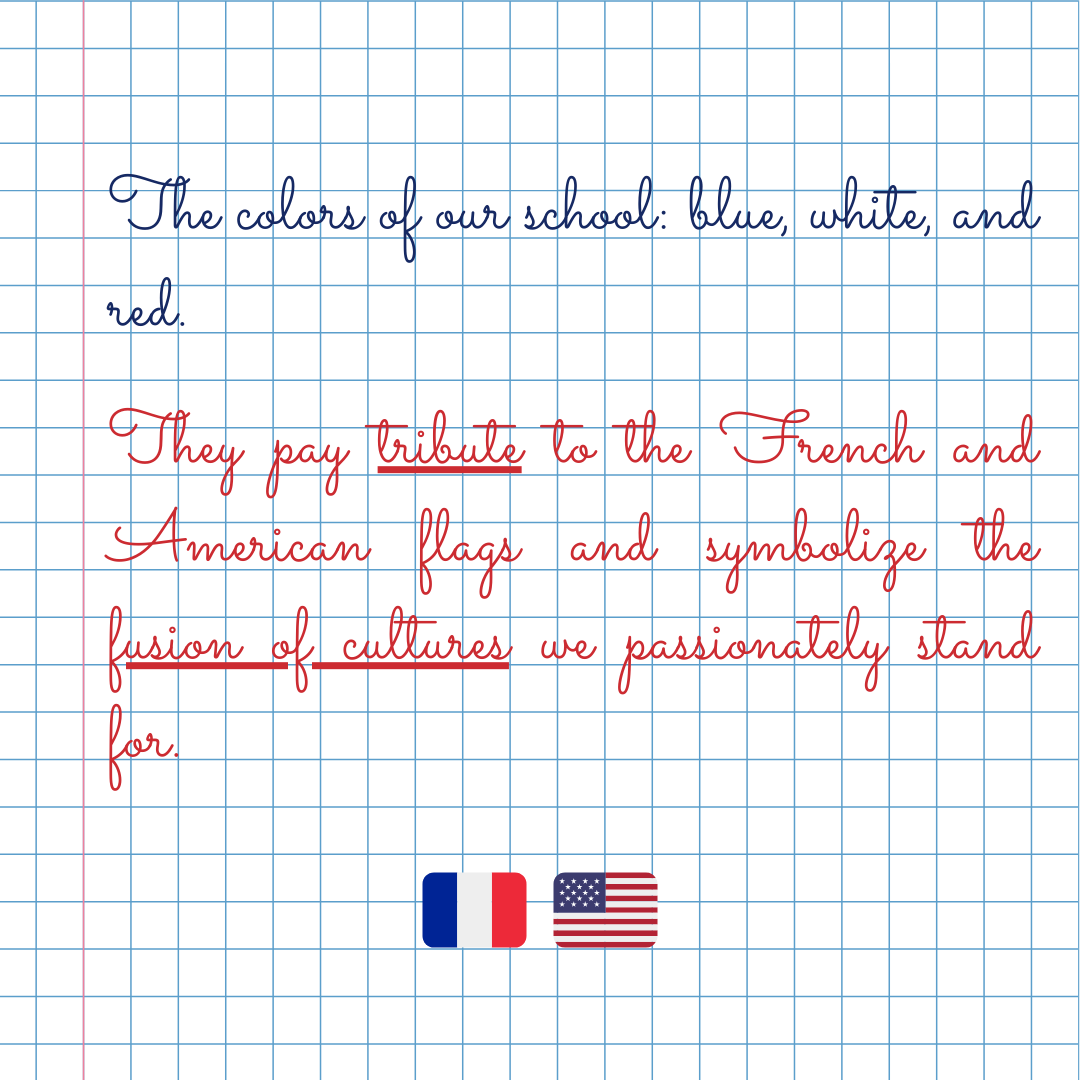 The colors of our school: blue, white, and
red.
They pay tribute to the French and
American flags and symbolize the
fusion of cultures we passionately stand
for.